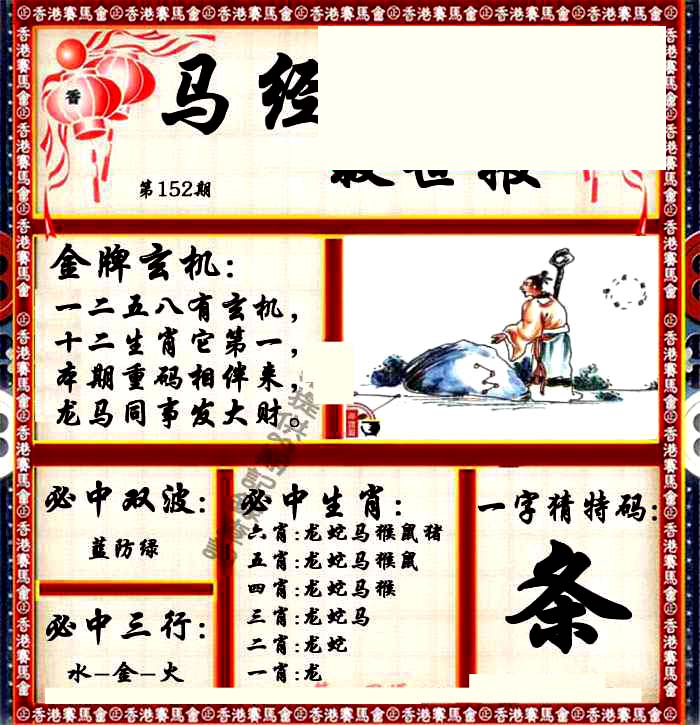 香港賽馬會
香
马经
救世报
第152期
金牌玄机:
一二五八有玄机，
十二生肖它第一，
本期重码相伴来，
龙马同事发大财。
必中双波:
蓝防绿
必中三行:
水-金-火
必中生肖:
六肖:龙蛇马猴鼠猪
五肖:龙蛇马猴鼠
四肖:龙蛇马猴
三肖:龙蛇马
二肖:龙蛇
一肖:龙
一字猜特码:
条